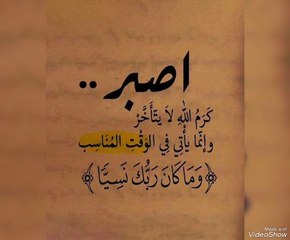 اصبر ..
كَرَمُ اللهِ لاَ يَتَأَخَّرْ
وإنَّمَا يَأْتِي فِي الوَقْتِ المُنَاسِبِ
﴿وَمَا كَانَ رَبُّكَ نَسِيًّا﴾
Made with
VideoShow